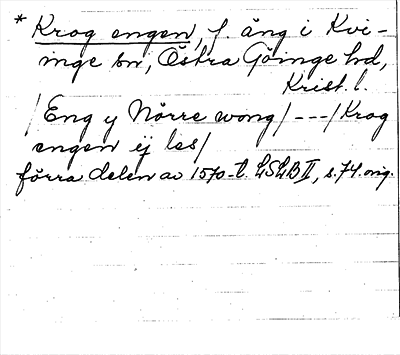 * Krog engen, f. äng i Kvi-
inge sn, Östra Göinge hd,
Krist. l.
/Eng y Nörre wong/ ---/Krog
engen ej les/
förra delen av 1570-t. LSLB II, s. 74. orig.